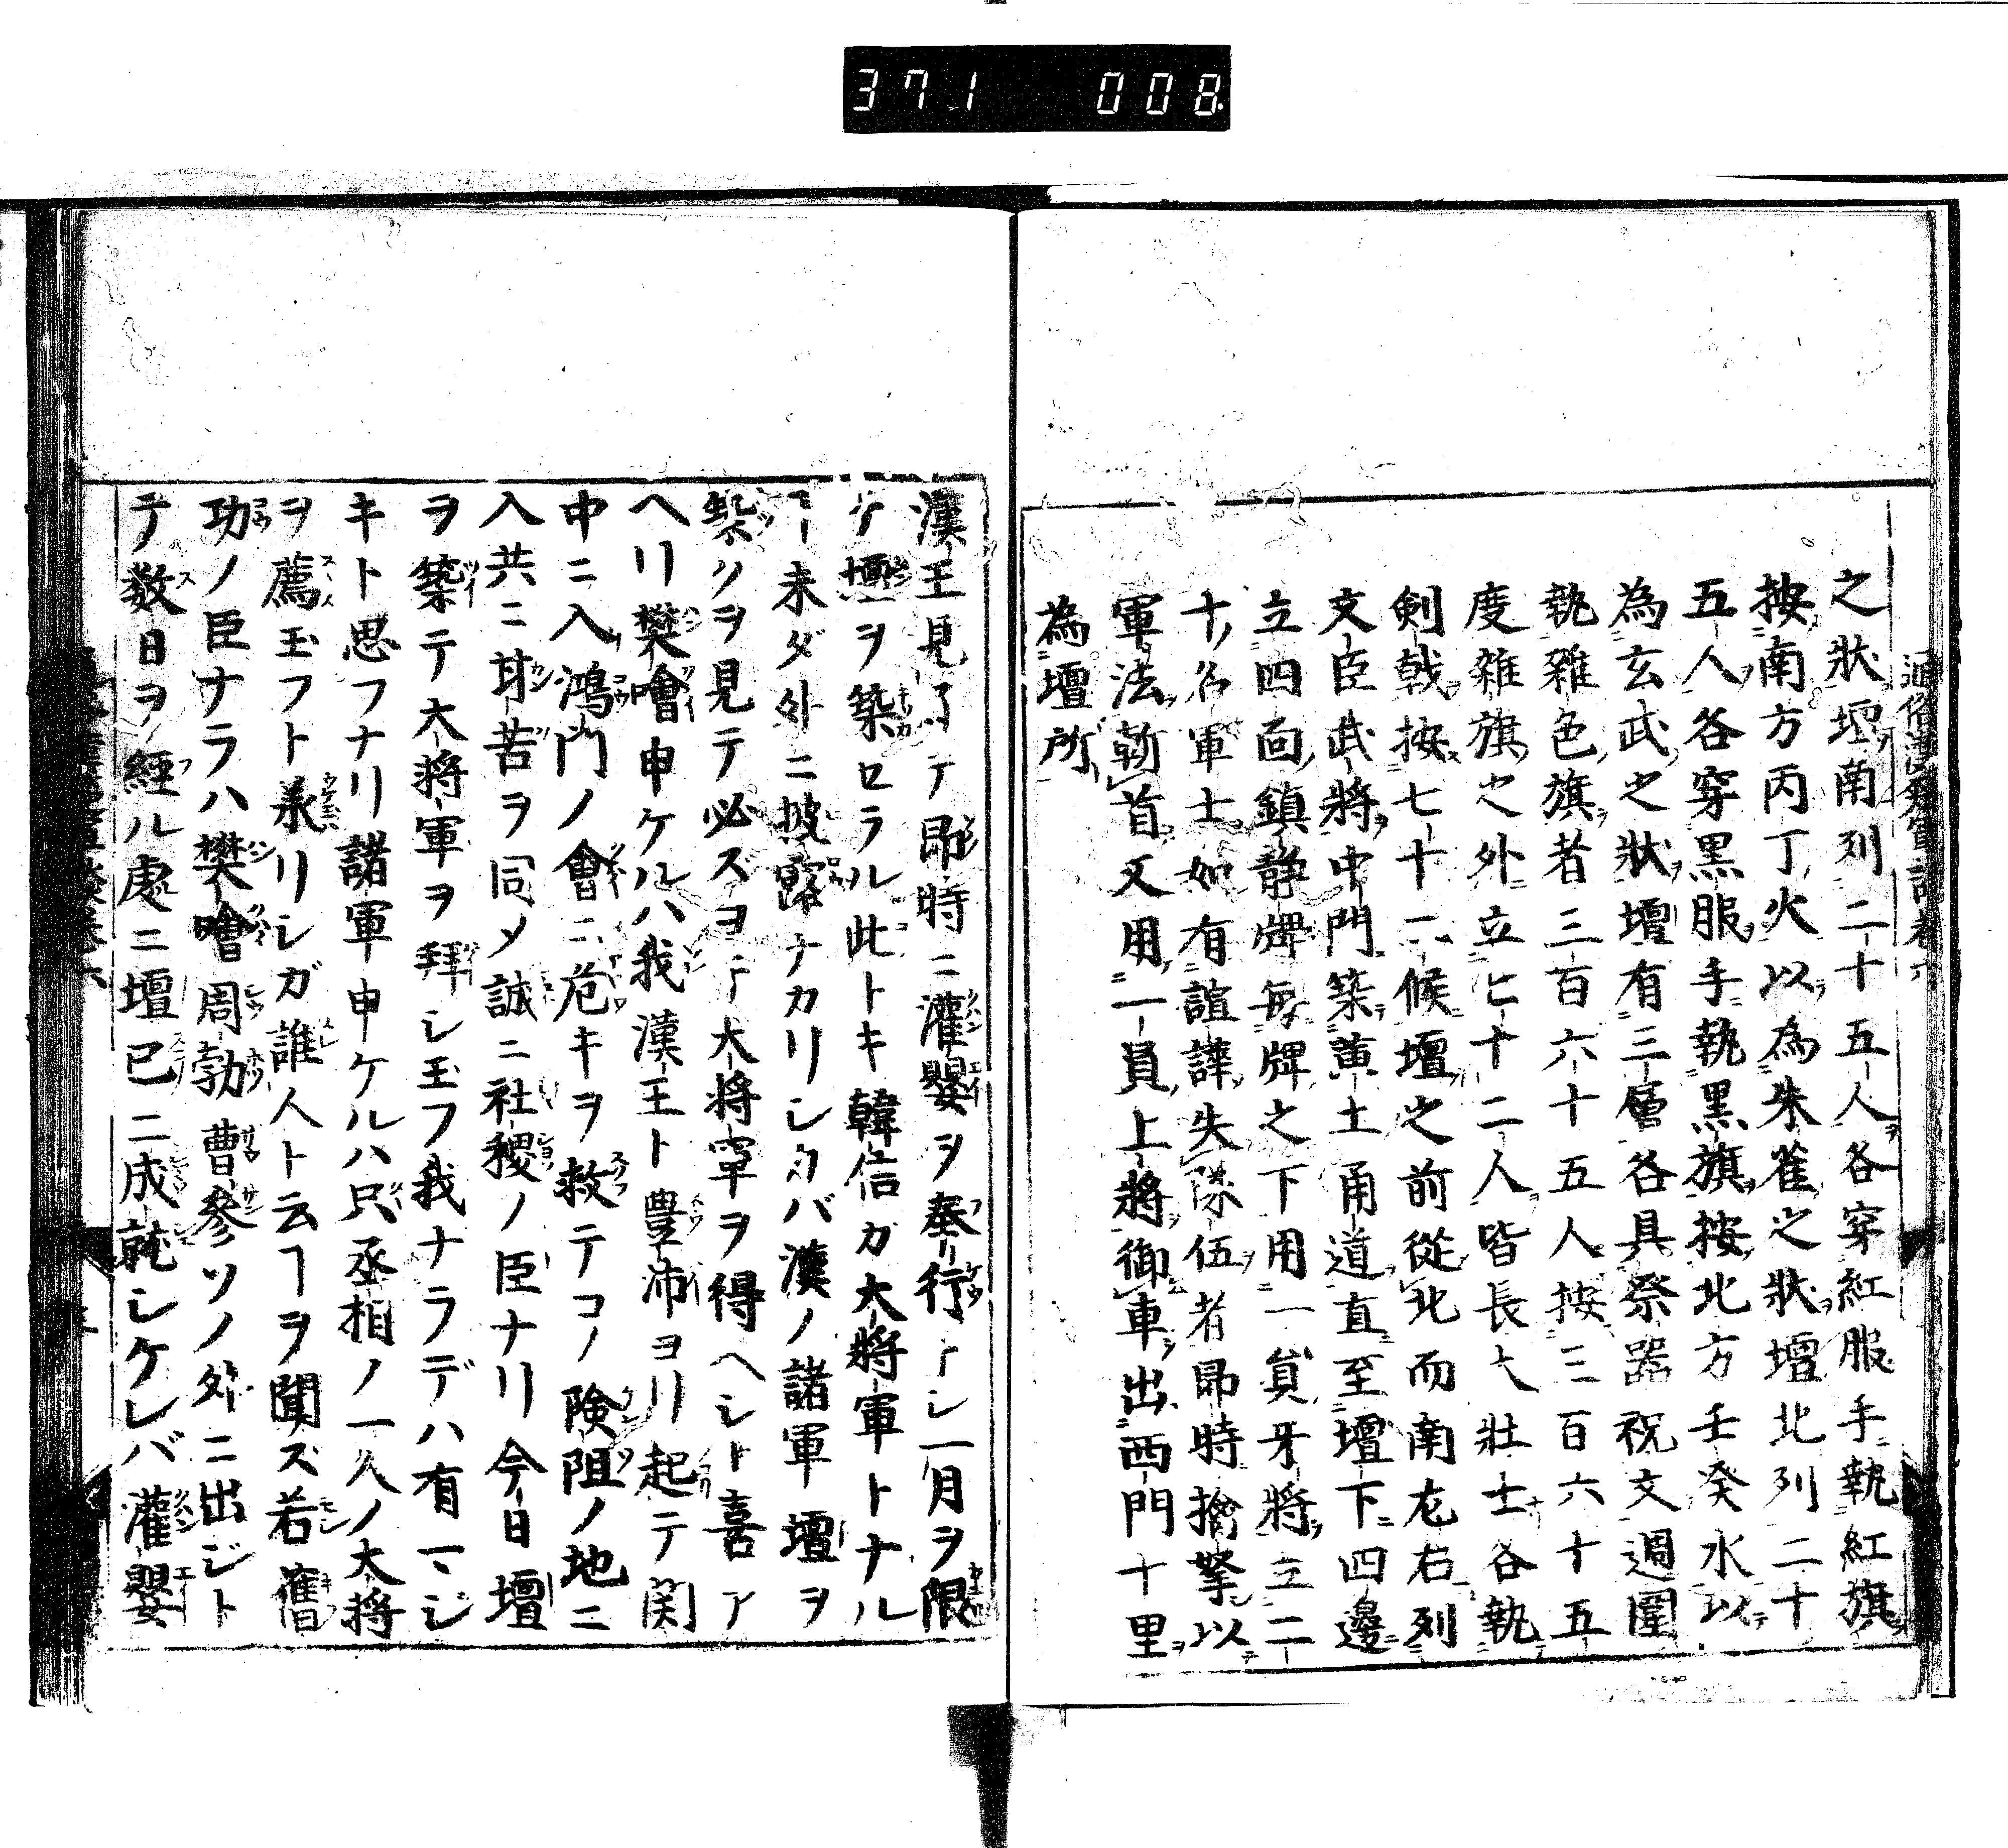 371 008
之狀壇南列二十五人各穿紅服手執紅旗
按南方丙丁火以為朱雀之狀壇北列二十
五人各穿黒服手執黒旗按北方壬癸水以
為玄武之狀壇有三層各具祭器祝文週圍
執雜色旗者三百六十五人按三百六十五
度雜旗之外立七十二人皆長大壯士各執
剣戟按七十二候壇之前從北而南左右列
文臣武將中門築黄土甬道直至壇下四邊
立四面鎮静牌毎牌之下用一員牙將立二
十名軍士如有諠譁失隊伍者即時擒拏以
軍法斬首又用一員上將御車出西門十里
為壇所
漢王見了テ即時ニ灌嬰ヲ奉行トシ一月ヲ限
テ壇ヲ築ロラル此トキ韓信カ大將軍トナル
ヿ未ダ外ニ披露ナカリシカバ漢ノ諸軍壇ヲ
築クヲ見テ必ズヨキ大将軍ヲ得ヘシト喜ア
ヘリ樊噲申ケルハ我漢王ト豊沛ヨリ起テ関
中ニ入鴻門ノ會ニ危キヲ救テコノ険阻ノ地ニ
入共ニ甘苦ヲ同メ誠ニ社稷ノ臣ナリ今日壇
ヲ築テ大将軍ヲ拜シ玉フ我ナラデハ有マジ
キト思フナリ諸軍申ケルハ只丞相ノ一人ノ大将
ヲ薦玉フト承リシガ誰人ト云ヿヲ聞ズ若舊
功ノ臣ナラハ樊噲周勃曹參ソノ外ニ出ジト
テ数日ヲ經ル處ニ壇已ニ成就シケレバ灌嬰